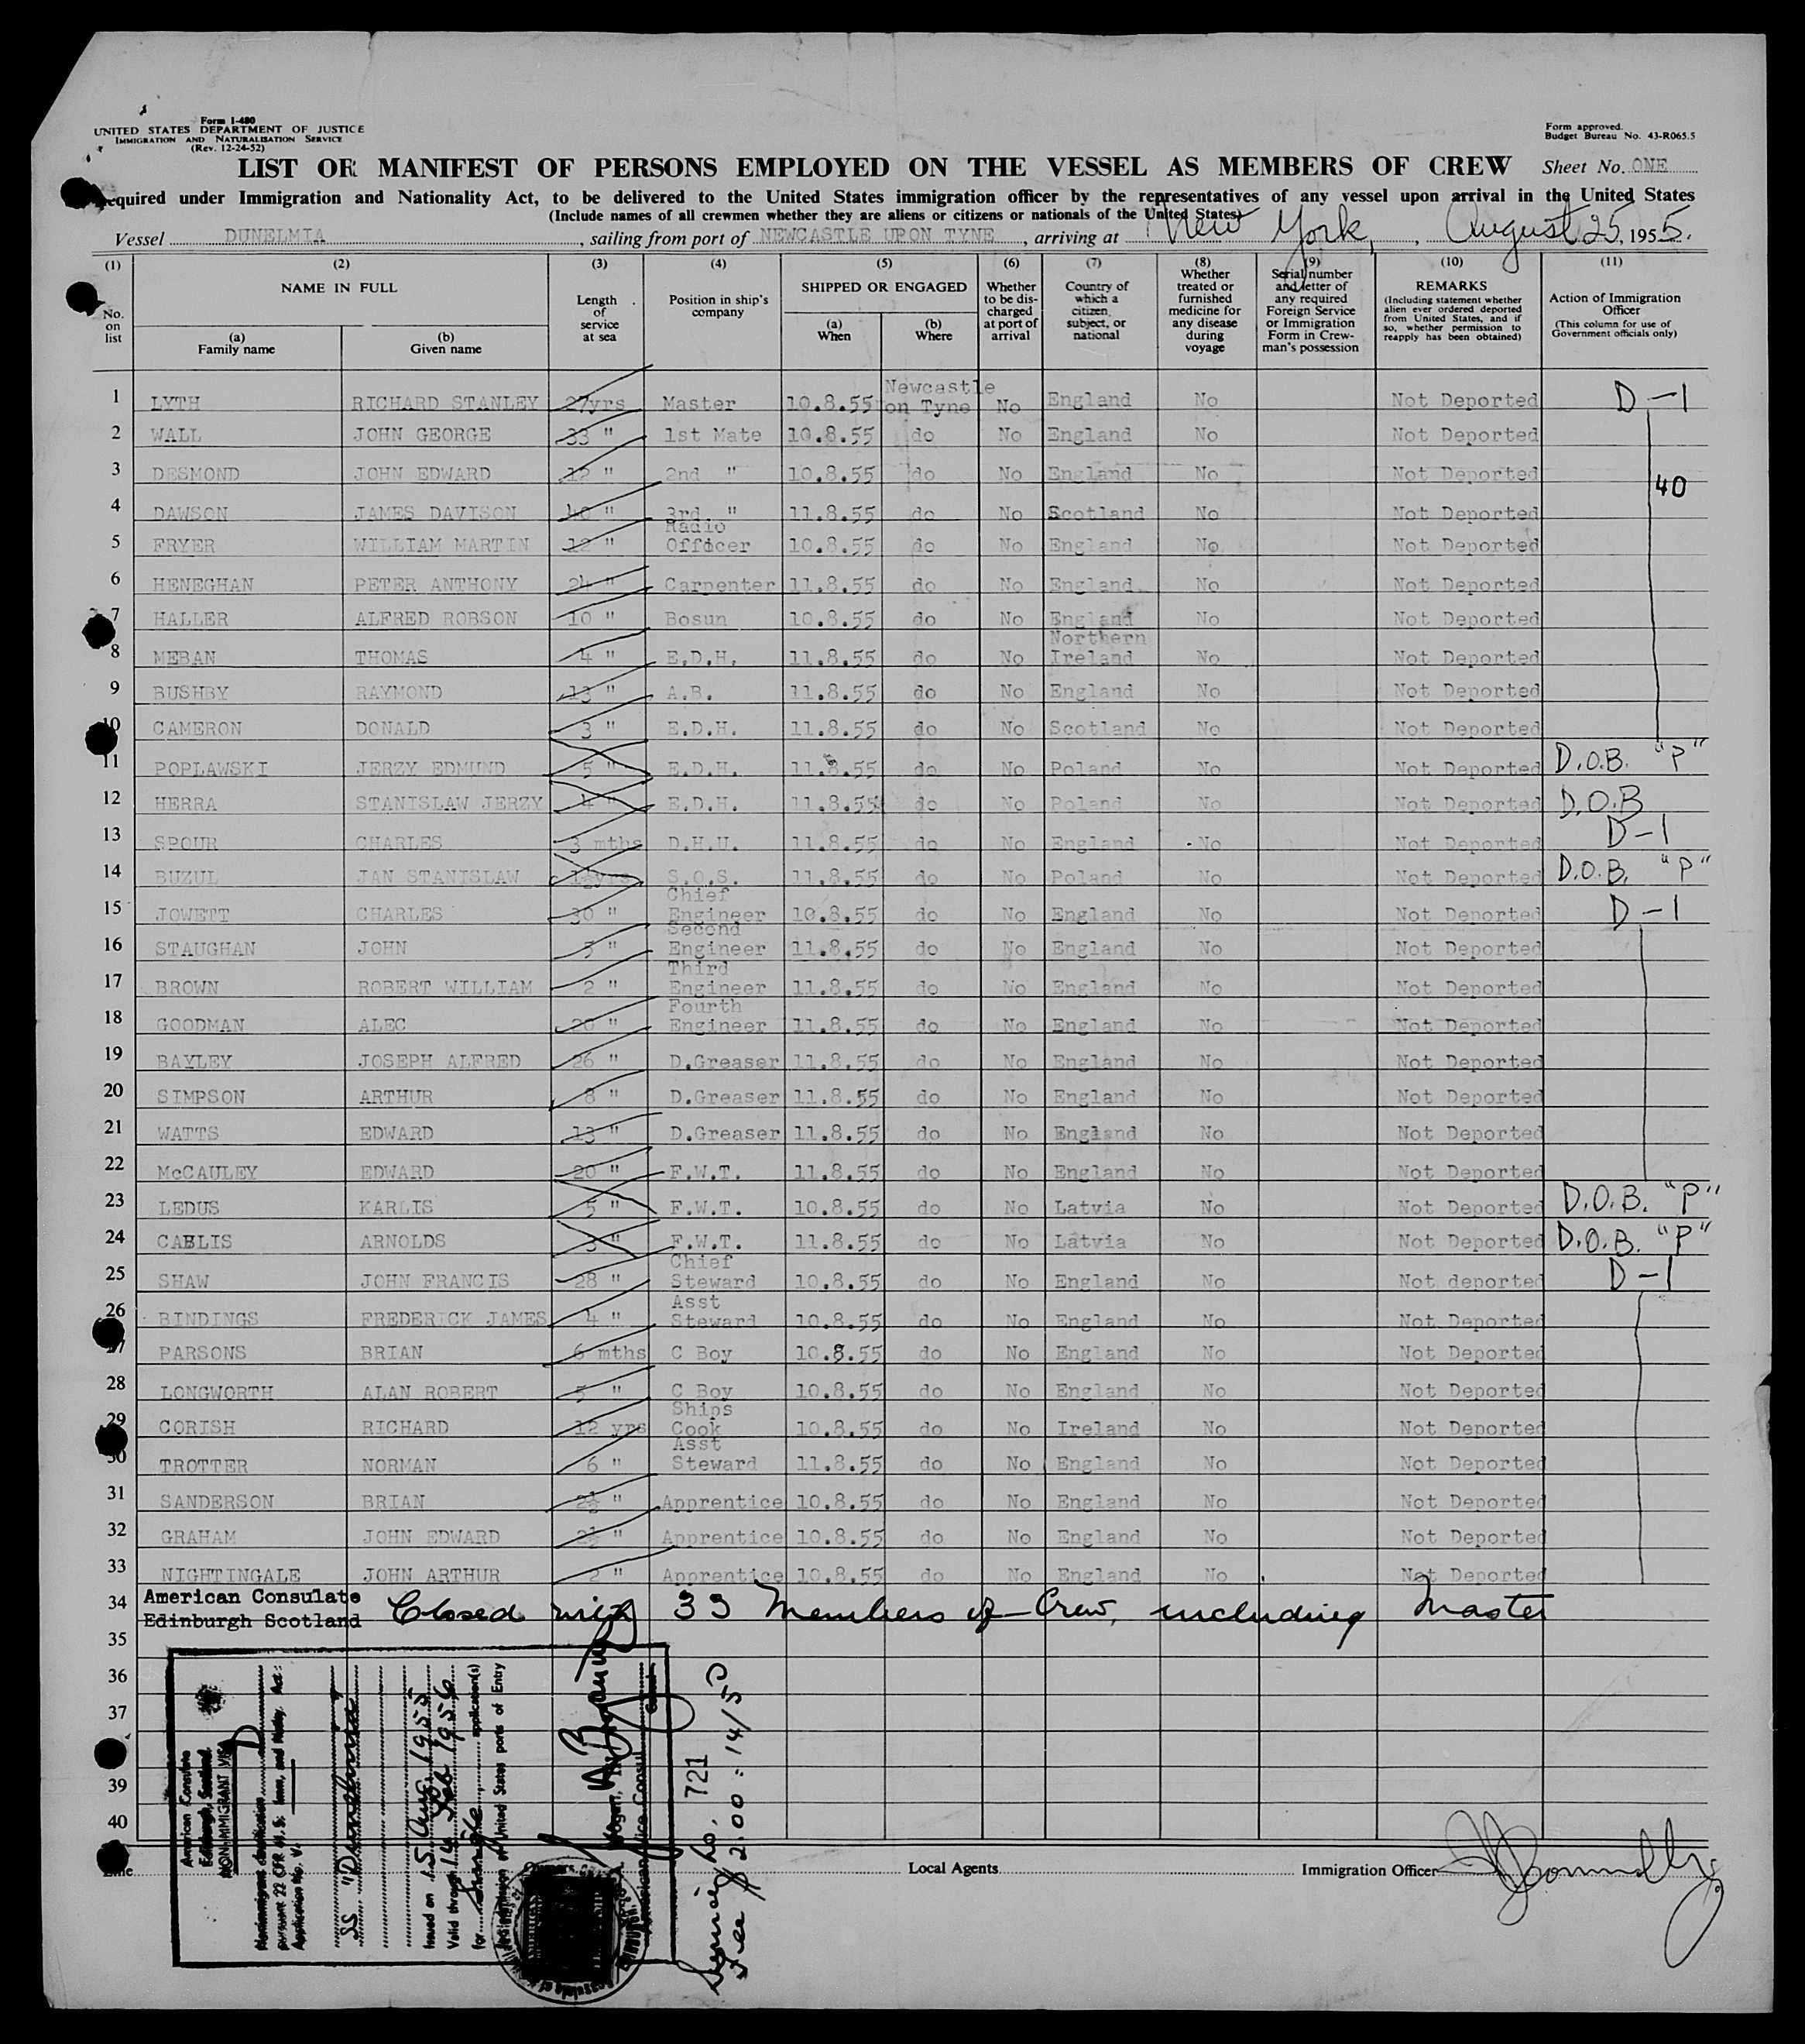 Form I-480
UNITED STATES DEPARTMENT OF JUSTICE
IMMIGRATION AND NATURALISATION SERVICE
(Rev. 12-24-52)
Form approved.
Budget Bureau No. 43-R065.5
LIST OR MANIFEST OF PERSONS EMPLOYED ON THE VESSEL AS MEMBERS OF CREW Sheet No. ONE
equired under Immigration and Nationality Act, to be delivered to the United States immigration officer by the representatives of any vessel upon arrival in the United States
(Include names of all crewmen whether they are aliens or citizens or nationals of the United States)
Vessel DUNELMIA, sailing from port of NEWCASTLE UPON TYNE, arriving at New York, August 25, 1955.
(1) No. on list
(2) NAME IN FULL (a) Family name (b) Given name
(3) Length of service at sea
(4) Position in ship's company
(5) SHIPPED OR ENGAGED (a) When (b) Where
(6) Whether to be discharged at port of arrival
(7) Country of which a citizen, subject, or national
(8) Whether treated or furnished medicine for any disease during voyage
(9) Serial number and letter of any required Foreign Service or Immigration Form in Crewman's possession
(10) REMARKS (Including statement whether alien ever ordered deported from United States, and if so, whether permission to reapply has been obtained)
(11) Action of Immigration Officer (This column for use of Government officials only)
1 LYTH RICHARD STANLEY 27yrs Master 10.8.55 Newcastle on Tyne No England No Not Deported D-1
2 WALL JOHN GEORGE 33 " 1st Mate 10.8.55 do No England No Not Deported
3 DESMOND JOHN EDWARD 12 " 2nd " 10.8.55 do No England No Not Deported 40
4 DAWSON JAMES DAVISON 40 " 3rd. " 11.8.55 do No Scotland No Not Deported
5 FRYER WILLIAM MARTIN 12 " Radio Officer 10.8.55 do No England No. Not Deported
6 HENEGHAN PETER ANTHONY 24 " Carpenter 11.8.55 do No England No Not Deported
7 HALLER ALFRED ROBSON 10 " Bosun 10.8.55 do No England No Not Deported
8 MEBAN THOMAS 4 " E.D.H. 11.8.55 do No Northern Ireland No Not Deported
9 BUSHBY RAYMOND 13 " A.B. 11.8.55 do No England No Not Deported
10 CAMERON DONALD 3 " E.D.H. 11.8.55 do No Scotland No Not Deported
11 POPLAWSKI JERZY EDMUND 5 " E.D.H. 11.8.55 do No Poland No Not Deported D.O.B. "P"
12 HERRA STANISLAW JERZY 4 " E.D.H. 11.8.55 do No Poland No Not Deported D.O.B
13 SPOUR CHARLES 3 mths D.H.U. 11.8.55 do No England No Not Deported D-1
14 BUZUL JAN STANISLAW 1½yrs S.O.S. 11.8.55 do No Poland No Not Deported D.O.B. "P"
15 JOWETT CHARLES 30 " Chief Engineer 10.8.55 do No England No Not Deported D-1
16 STAUGHAN JOHN 5 " Second Engineer 11.8.55 do No England No Not Deported
17 BROWN ROBERT WILLIAM 2 " Third Engineer 11.8.55 do No England No Not Deported
18 GOODMAN ALEC 20 " Fourth Engineer 11.8.55 do No England No Not Deported
19 BAYLEY JOSEPH ALFRED 26 " D.Greaser 11.8.55 do No England No Not Deported
20 SIMPSON ARTHUR 8 " D.Greaser 11.8.55 do No England No Not Deported
21 WATTS EDWARD 13 " D.Greaser 11.8.55 do No England No Not Deported
22 McCAULEY EDWARD 20 " F.W.T. 11.8.55 do No England No Not Deported
23 LEDUS KARLIS 5 " F.W.T. 10.8.55 do No Latvia No Not Deported D.O.B. "P"
24 ARNOLDS 3 " F.W.T. 11.8.55 do No Latvia No Not Deported D.O.B. "P"
25 SHAW JOHN FRANCIS 28 " Chief Steward 10.8.55 do No England No Not deported D-1
26 BINDINGS FREDERICK JAMES 4 " Asst Steward 10.8.55 do No England No Not Deported
27 PARSONS BRIAN 6 mths C Boy 10.8.55 do No England No Not Deported
28 LONGWORTH ALAN ROBERT 5 " C Boy 10.8.55 do No England No Not Deported
29 CORISH RICHARD 12 yrs Ships Cook 10.8.55 do No Ireland No Not Deported
30 TROTTER NORMAN 6 " Asst Steward 11.8.55 do No England No Not Deported
31 SANDERSON BRIAN 2½ " Apprentice 10.8.55 do No England No Not Deported
32 GRAHAM JOHN EDWARD 2½ " Apprentice 10.8.55 do No England No Not Deported
33 NIGHTINGALE JOHN ARTHUR 2 " Apprentice 10.8.55 do No England No Not Deported
34 American Consulate
Edinburgh Scotland Closed with 33 Members of Crew, including Master
35
36
37
39
40
American Consulate
Edinburgh, Scotland
NONIMMIGRANT VISA
Nonimmigrant classification D
pursuant 22 CFR
Application No. V.
SS "Dunelmia"
Issued on 15 Aug 1955
Valid through 14 Feb 1956
for Single application(s)
for admission at United States ports of Entry
Vice Consul
Service No. 721
Fee $ 2.00 = 14/50
Line Local Agents Immigration Officer